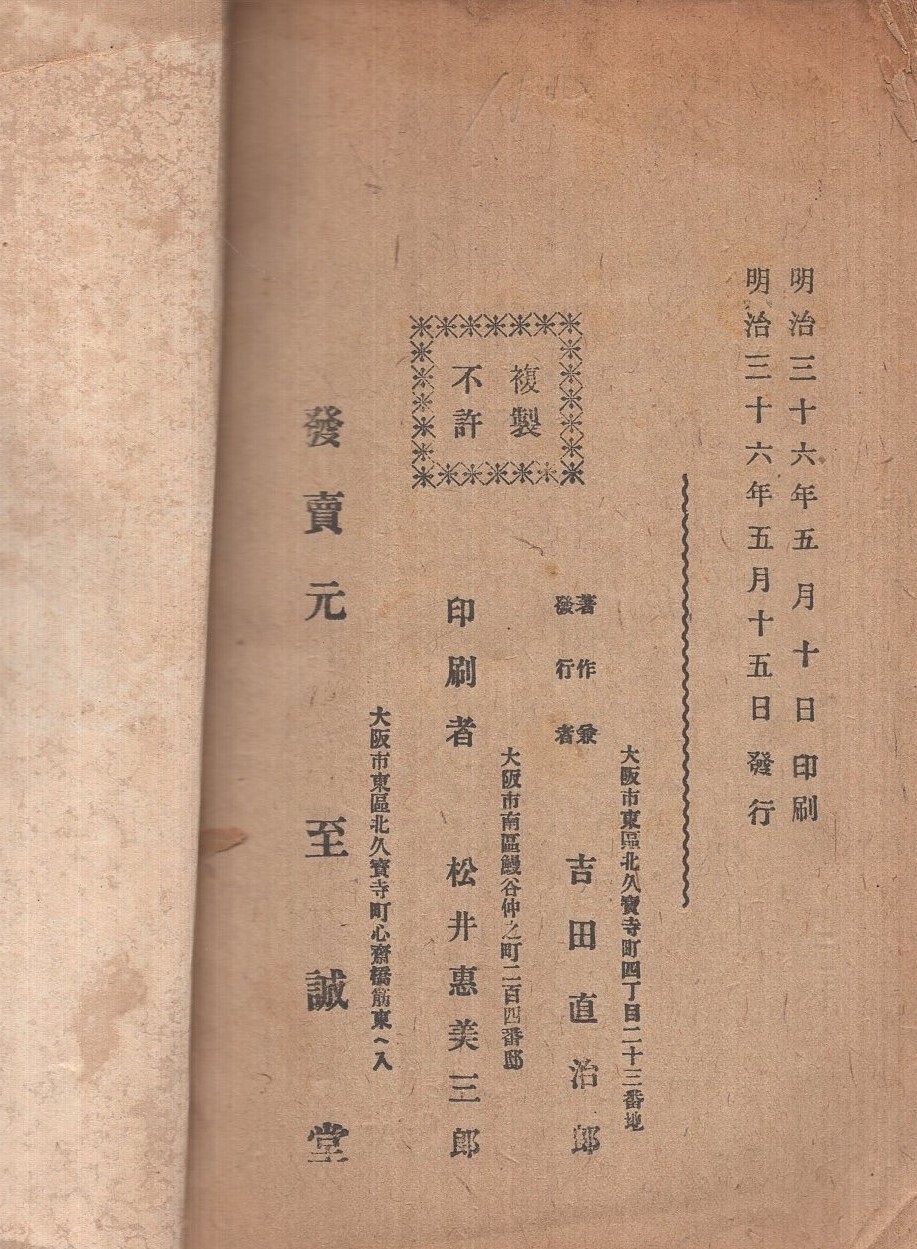 明治三十六年五月十日印刷
明治三十六年五月十五日發行
大阪市東區北久寳寺町四丁目二十三番地
著作兼
發行者
吉田直治郎
複製
不許
大阪市南區鰻谷仲之町二百四番邸
印刷者 松井惠美三郎
大阪市東區北久寳寺町心齋橋筋東へ入
發賣元 至誠堂